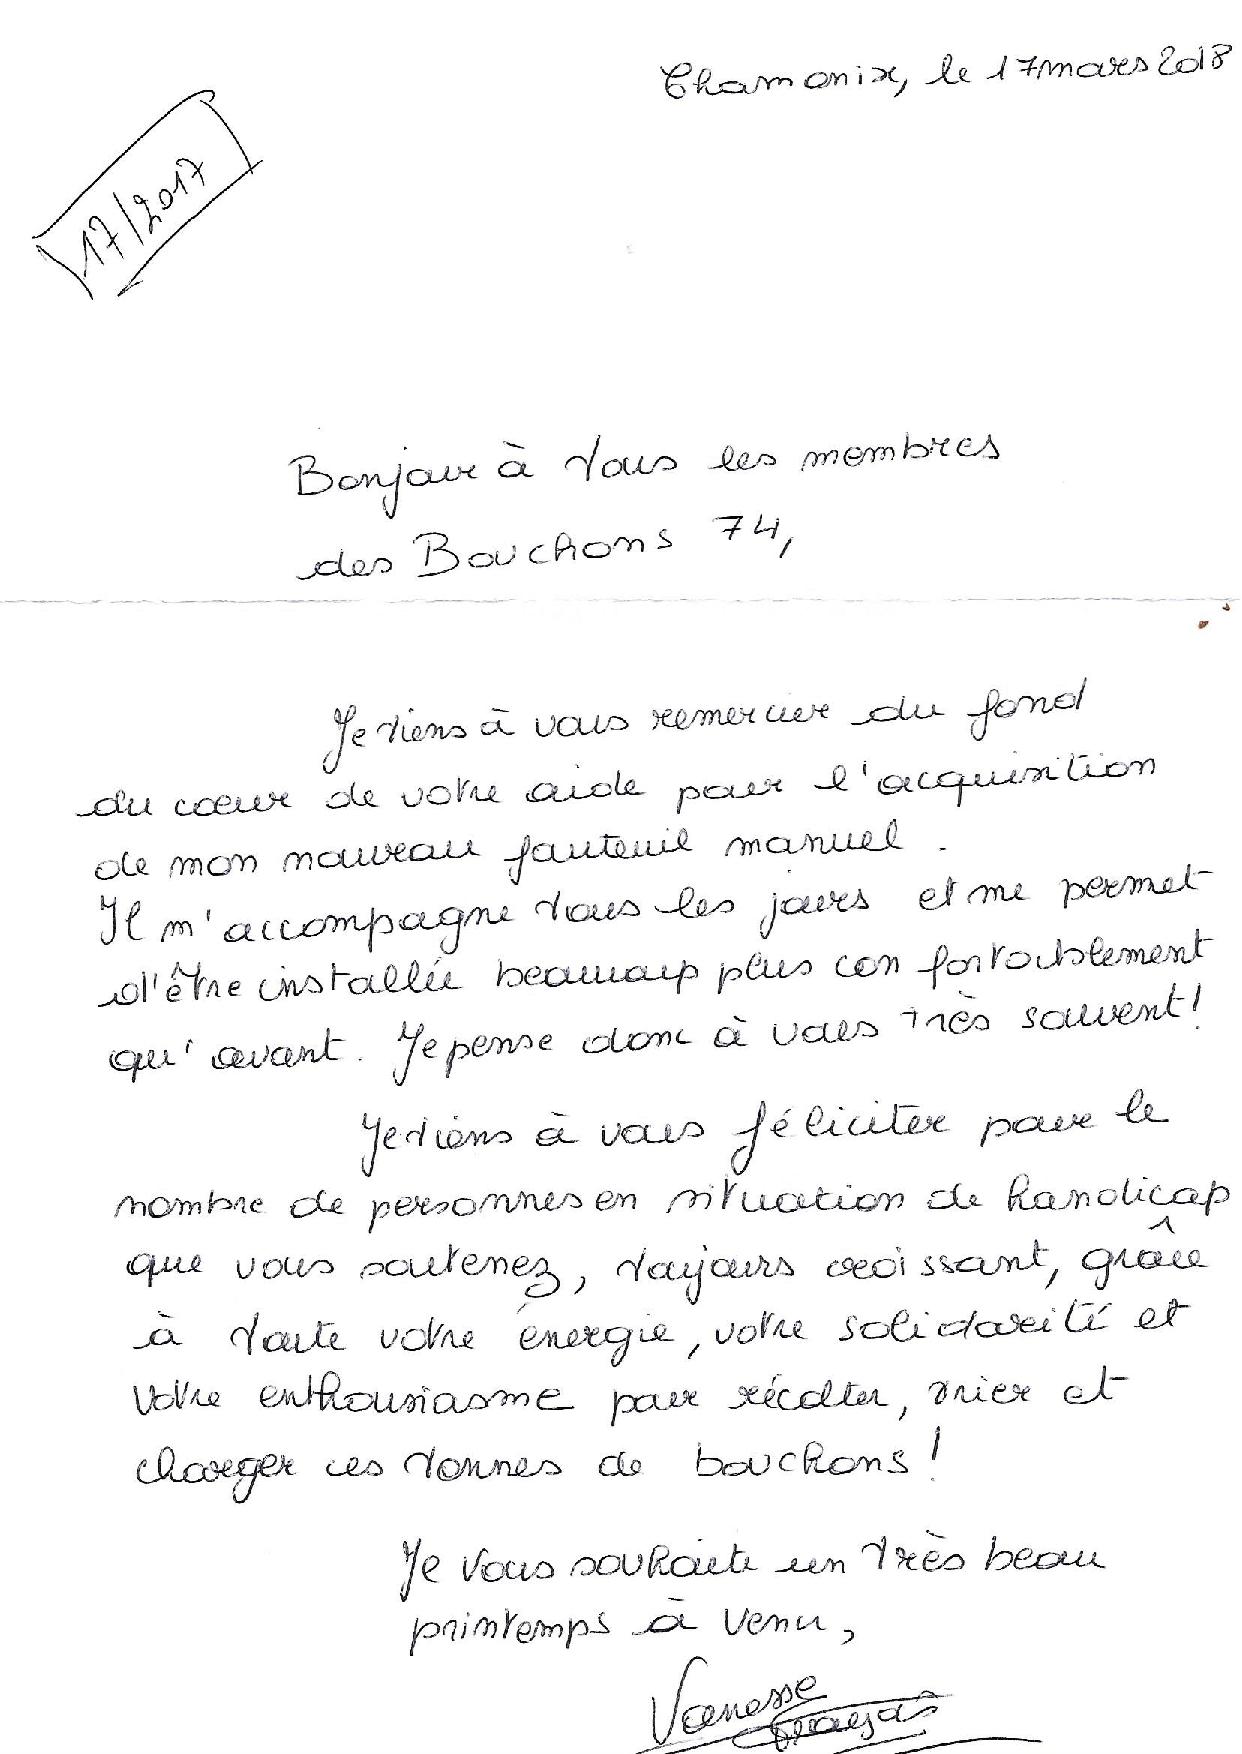 Chamonix, le 17 mars 2018
17/2017
Bonjour à tous les membres
des Bouchons 74,
Je tiens à vous remercier du fond
du cœur de votre aide pour l'acquisition
de mon nouveau fauteuil manuel.
Il m'accompagne tous les jours et me permet
d'être installée beaucoup plus confortablement
qu'avant. Je pense donc à vous très souvent!
Je tiens à vous féliciter pour le
nombre de personnes en situation de handicap
que vous soutenez, toujours croissant, grâce
à toute votre énergie, votre solidarité et
votre enthousiasme pour récolter, trier et
charger ces tonnes de bouchons!
Je vous souhaite un très beau
printemps à venir,
Vanesse